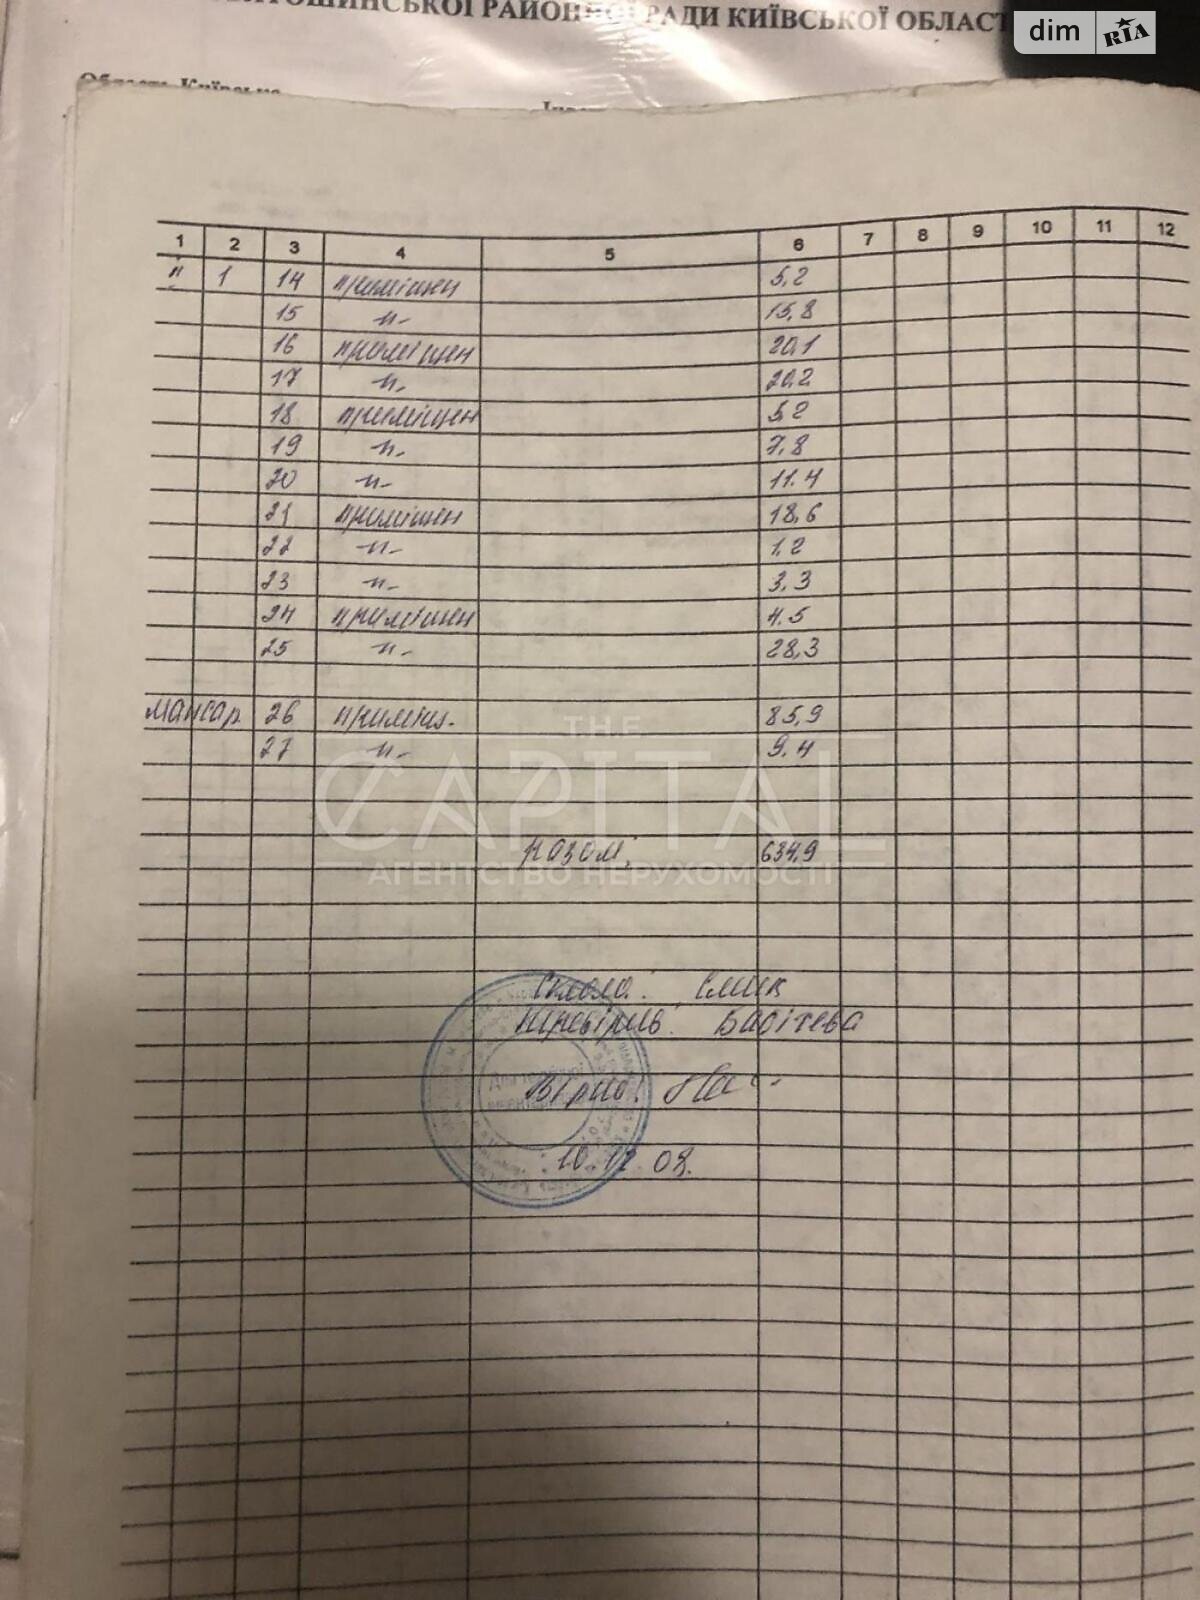 РАЙОННОЇ РАДИ КИЇВСЬКОЇ ОБЛАСТ
dim RIA
Область Київська
1 2 3 4 5 6 7 8 9 10 11 12
1 14 приміщен 5,2
15 -"- 15,8
16 приміщен 20,1
17 -"- 20,2
18 приміщен 5,2
19 -"- 7,8
20 -"- 11.4
21 приміщен 18,6
22 -"- 1,2
23 -"- 3,3
24 приміщен 4.5
25 -"- 28,3
мансар 26 приміщ. 85,9
27 -"- 9.4
THE
CAPITAL
разом: 634,9
АГЕНТСТВО НЕРУХОМОСТІ
Склала:
10.12.08.